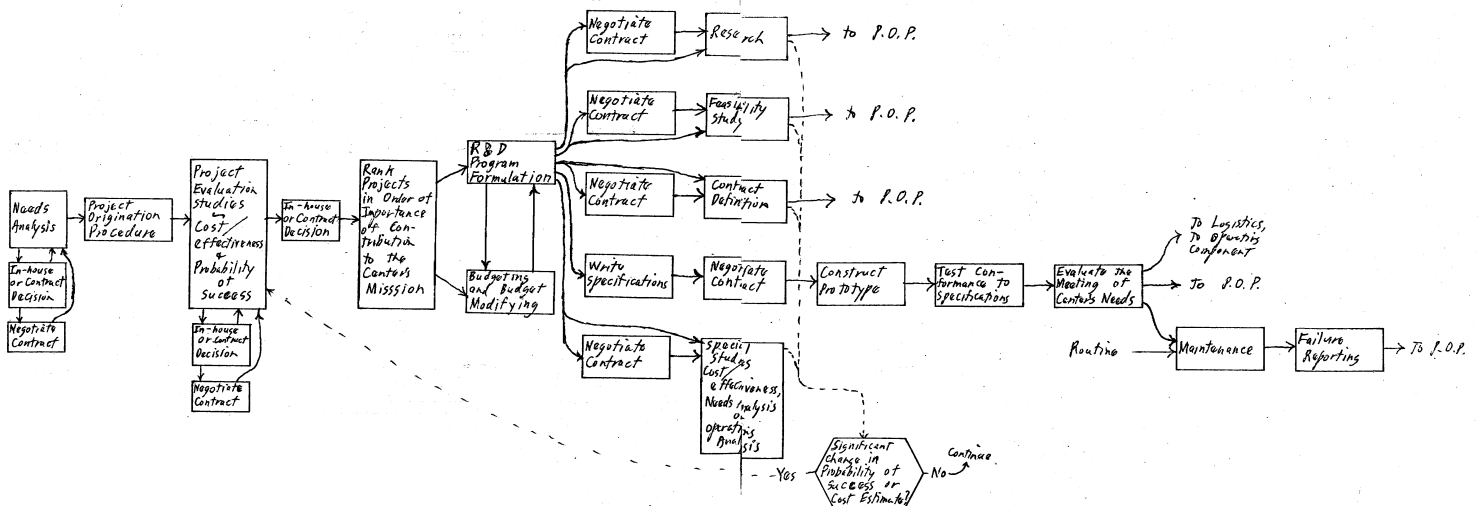 Needs
Analysis
In-house
or Contract
Decision
Negotiate
Contract
Project
Origination
Procedure
Project
Evaluation
Studies
Cost/
effectiveness
&
Probability
of
Success
In-house
or Contract
Decision
Negotiate
Contract
In-house
or Contract
Decision
Rank
Projects
in Order of
Importance
of Con-
tribution
to the
Center's
Misssion
R&D
Program
Formulation
Budgeting
and Budget
Modifying
Negotiate
Contract
Research
to P.O.P.
Negotiate
Contract
Feasibility
Study
to P.O.P.
Negotiate
Contract
Contract
Definition
to P.O.P.
Write
Specifications
Negotiate
Contract
Construct
Prototype
Test Con-
formance to
Specifications
Evaluate the
Meeting of
Center's Needs
To Logistics,
To Operating
Component
To P.O.P.
Routine
Maintenance
Failure
Reporting
To P.O.P.
Negotiate
Contract
Special
Studies
Cost/
effectiveness,
Needs Analysis
or
Operations
Analysis
Significant
Change in
Probability of
Success or
Cost Estimate?
Yes
No
Continue